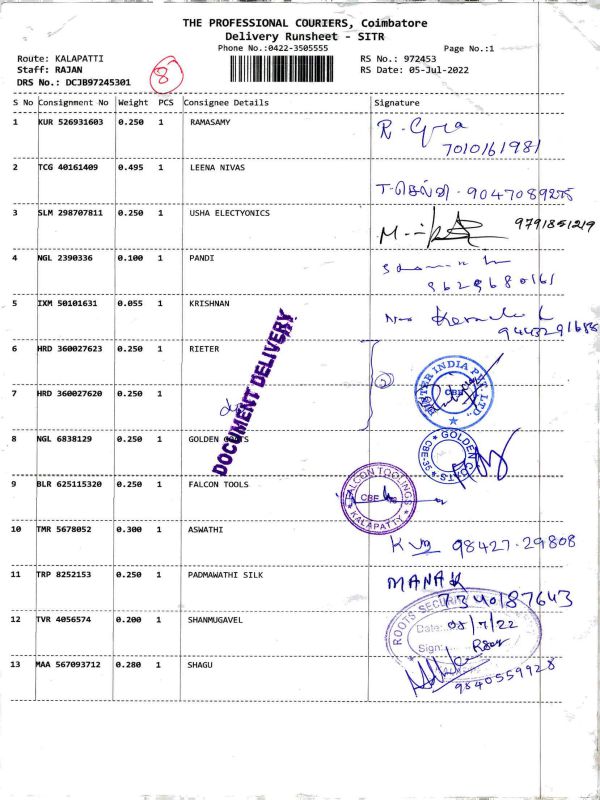 THE PROFESSIONAL COURIERS, Coimbatore
Delivery Runsheet - SITR
Phone No.:0422-3505555
Page No.:1
Route: KALAPATTI
RS No.: 972453
Staff: RAJAN
8
RS Date: 05-Jul-2022
DRS No.: DCJB97245301
S No Consignment No Weight PCS Consignee Details Signature
1 KUR 526931603 0.250 1 RAMASAMY
7010161981
2 TCG 40161409 0.495 1 LEENA NIVAS
T. செல்வி - 9047089275
3 SLM 298707811 0.250 1 USHA ELECTYONICS
9791851219
4 NGL 2390336 0.100 1 PANDI
9629680161
5 IXM 50101631 0.055 1 KRISHNAN
6 HRD 360027623 0.250 1 RIETER
DOCUMENT DELIVERY
2
7 HRD 360027620 0.250 1
CBE
8 NGL 6838129 0.250 1 GOLDEN COTS
GOLDEN COTS
CBE-35
9 BLR 625115320 0.250 1 FALCON TOOLS
FALCON TOOLINGS
CBE
KALAPATTY
10 TMR 5678052 0.300 1 ASWATHI
98427-29808
11 TRP 8252153 0.250 1 PADMAWATHI SILK
MANAK
7340187643
12 TVR 4056574 0.200 1 SHANMUGAVEL
ROOTS SECURI
Date:
Sign:
13 MAA 567093712 0.280 1 SHAGU
9840559928